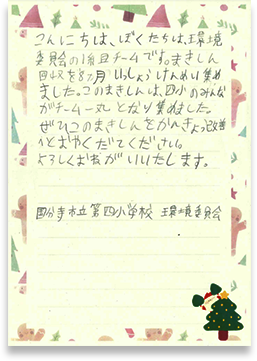 こんにちは、ぼくたちは、環境
委員会の チームです。まきしん
回収を8ヶ月いっしょうけんめい集め
ました。このまきしんは、四小のみんな
がチーム一丸となり集めました。
ぜひこのまきしんをかんきょう改善
へとおやくだてください。
よろしくおねがいいたします。
国分寺市立第四小学校 環境委員会